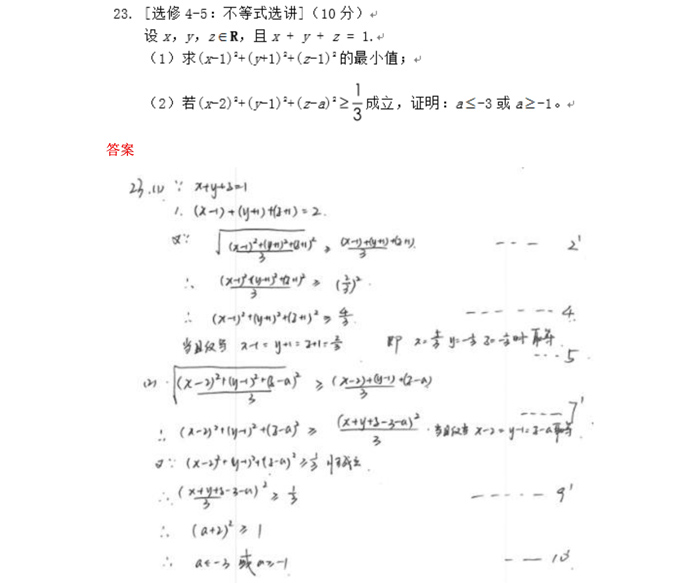 23. [选修 4-5：不等式选讲]（10 分）
设 x，y，z∈R，且 x + y + z = 1.
（1）求(x-1)²+(y+1)²+(z-1)²的最小值；
（2）若(x-2)²+(y-1)²+(z-a)²≥1/3成立，证明：a≤-3 或 a≥-1。
答案
23.(1) ∵ x+y+z=1
∴ (x-1)+(y+1)+(z+1)=2.
又∵ √((x-1)²+(y+1)²+(z+1)²/3) ≥ (x-1)+(y+1)+(z+1)/3 --- 2'
∴ (x-1)²+(y+1)²+(z+1)²/3 ≥ (2/3)²
∴ (x-1)²+(y+1)²+(z+1)² ≥ 4/3 ------ 4
当且仅当 x-1=y+1=z+1=2/3 即 x=5/3 y=-1/3 z=-1/3 时取等 --- 5
(2) √((x-2)²+(y-1)²+(z-a)²/3) ≥ (x-2)+(y-1)+(z-a)/3
∴ (x-2)²+(y-1)²+(z-a)² ≥ (x+y+z-3-a)²/3 . 当且仅当 x-2=y-1=z-a取等 ---- 7'
又∵ (x-2)²+(y-1)²+(z-a)² ≥ 1/3 成立
∴ (x+y+z-3-a)²/3 ≥ 1/3 ----- 9'
∴ (a+2)² ≥ 1
∴ a≤-3 或 a≥-1 --- 10'